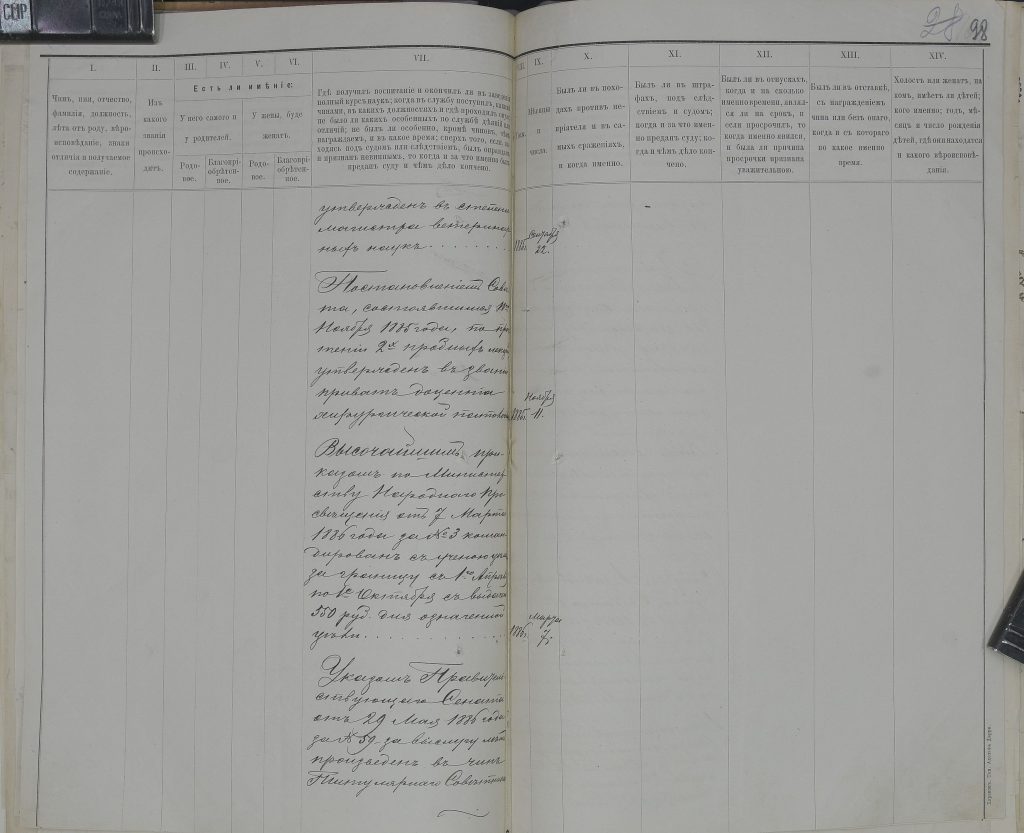 28 98
I.
II.
III.
IV.
V.
VI.
VII.
VIII.
IX.
X.
XI.
XII.
XIII.
XIV.
Чинъ, имя, отчество,
фамилія, должность,
лѣта отъ роду, вѣро-
исповѣданіе, знаки
отличія и получаемое
содержаніе.
Изъ
какого
званія
происхо-
дитъ.
Есть ли имѣніе:
У него самого и
у родителей.
У жены, буде
женатъ.
Родо-
вое.
Благопрі-
обрѣтен-
ное.
Родо-
вое.
Благопрі-
обрѣтен-
ное.
Гдѣ получилъ воспитаніе и окончилъ ли въ заведеніи
полный курсъ наукъ; когда въ службу поступилъ, какими
чинами, въ какихъ должностяхъ и гдѣ проходилъ оную;
не было ли какихъ особенныхъ по службѣ дѣяній или
отличій; не былъ ли особенно, кромѣ чиновъ, чѣмъ
награждаемъ, и въ какое время; сверхъ того, если на-
ходясь подъ судомъ или слѣдствіемъ, былъ оправданъ
и признанъ невиннымъ, то когда и за что именно былъ
преданъ суду и чѣмъ дѣло кончено.
Мѣсяцы
и
числа.
Былъ ли въ похо-
дахъ противъ не-
пріятеля и въ са-
мыхъ сраженіяхъ,
и когда именно.
Былъ ли въ штра-
фахъ, подъ слѣд-
ствіемъ и судомъ;
когда и за что имен-
но преданъ суду; ко-
гда и чѣмъ дѣло кон-
чено.
Былъ ли въ отпускахъ,
когда и на сколько
именно времени, являл-
ся ли на срокъ, и
если просрочилъ, то
когда именно явился
и была ли причина
просрочки признана
уважительною.
Былъ ли въ отставкѣ,
съ награжденіемъ
чина или безъ онаго,
когда и съ котораго
по какое именно
время.
Холостъ или женатъ, на
комъ, имѣетъ ли дѣтей;
кого именно; годъ, мѣ-
сяцъ и число рожденія
дѣтей, гдѣ они находятся
и какого вѣроисповѣ-
данія.
утвержденъ въ степени
магистра ветеринар-
ныхъ наукъ . . . . . . .
Сентября
22.
Постановленіемъ Совѣ-
та, состоявшимся 11го
Ноября 1885 года, по про-
чтеніи 2х пробныхъ лекцій
утвержденъ въ званіи
приватъ доцента
1885.
Ноября
11.
Высочайшимъ при-
казомъ по Министер-
ству Народнаго Про-
свѣщенія отъ 7 Марта
1886 года за № 3 коман-
дированъ съ ученою цѣлью
за границу съ 1го Апрѣля
по 1е Октября съ выдачею
550 руб. для означенной
цѣли . . . . . . . . . . . .
1886.
Марта
7.
Указомъ Правитель-
ствующаго Сената
отъ 29 Мая 1886 года
за № 59 за выслугу лѣтъ
произведенъ въ чинъ
Титулярнаго Совѣтника